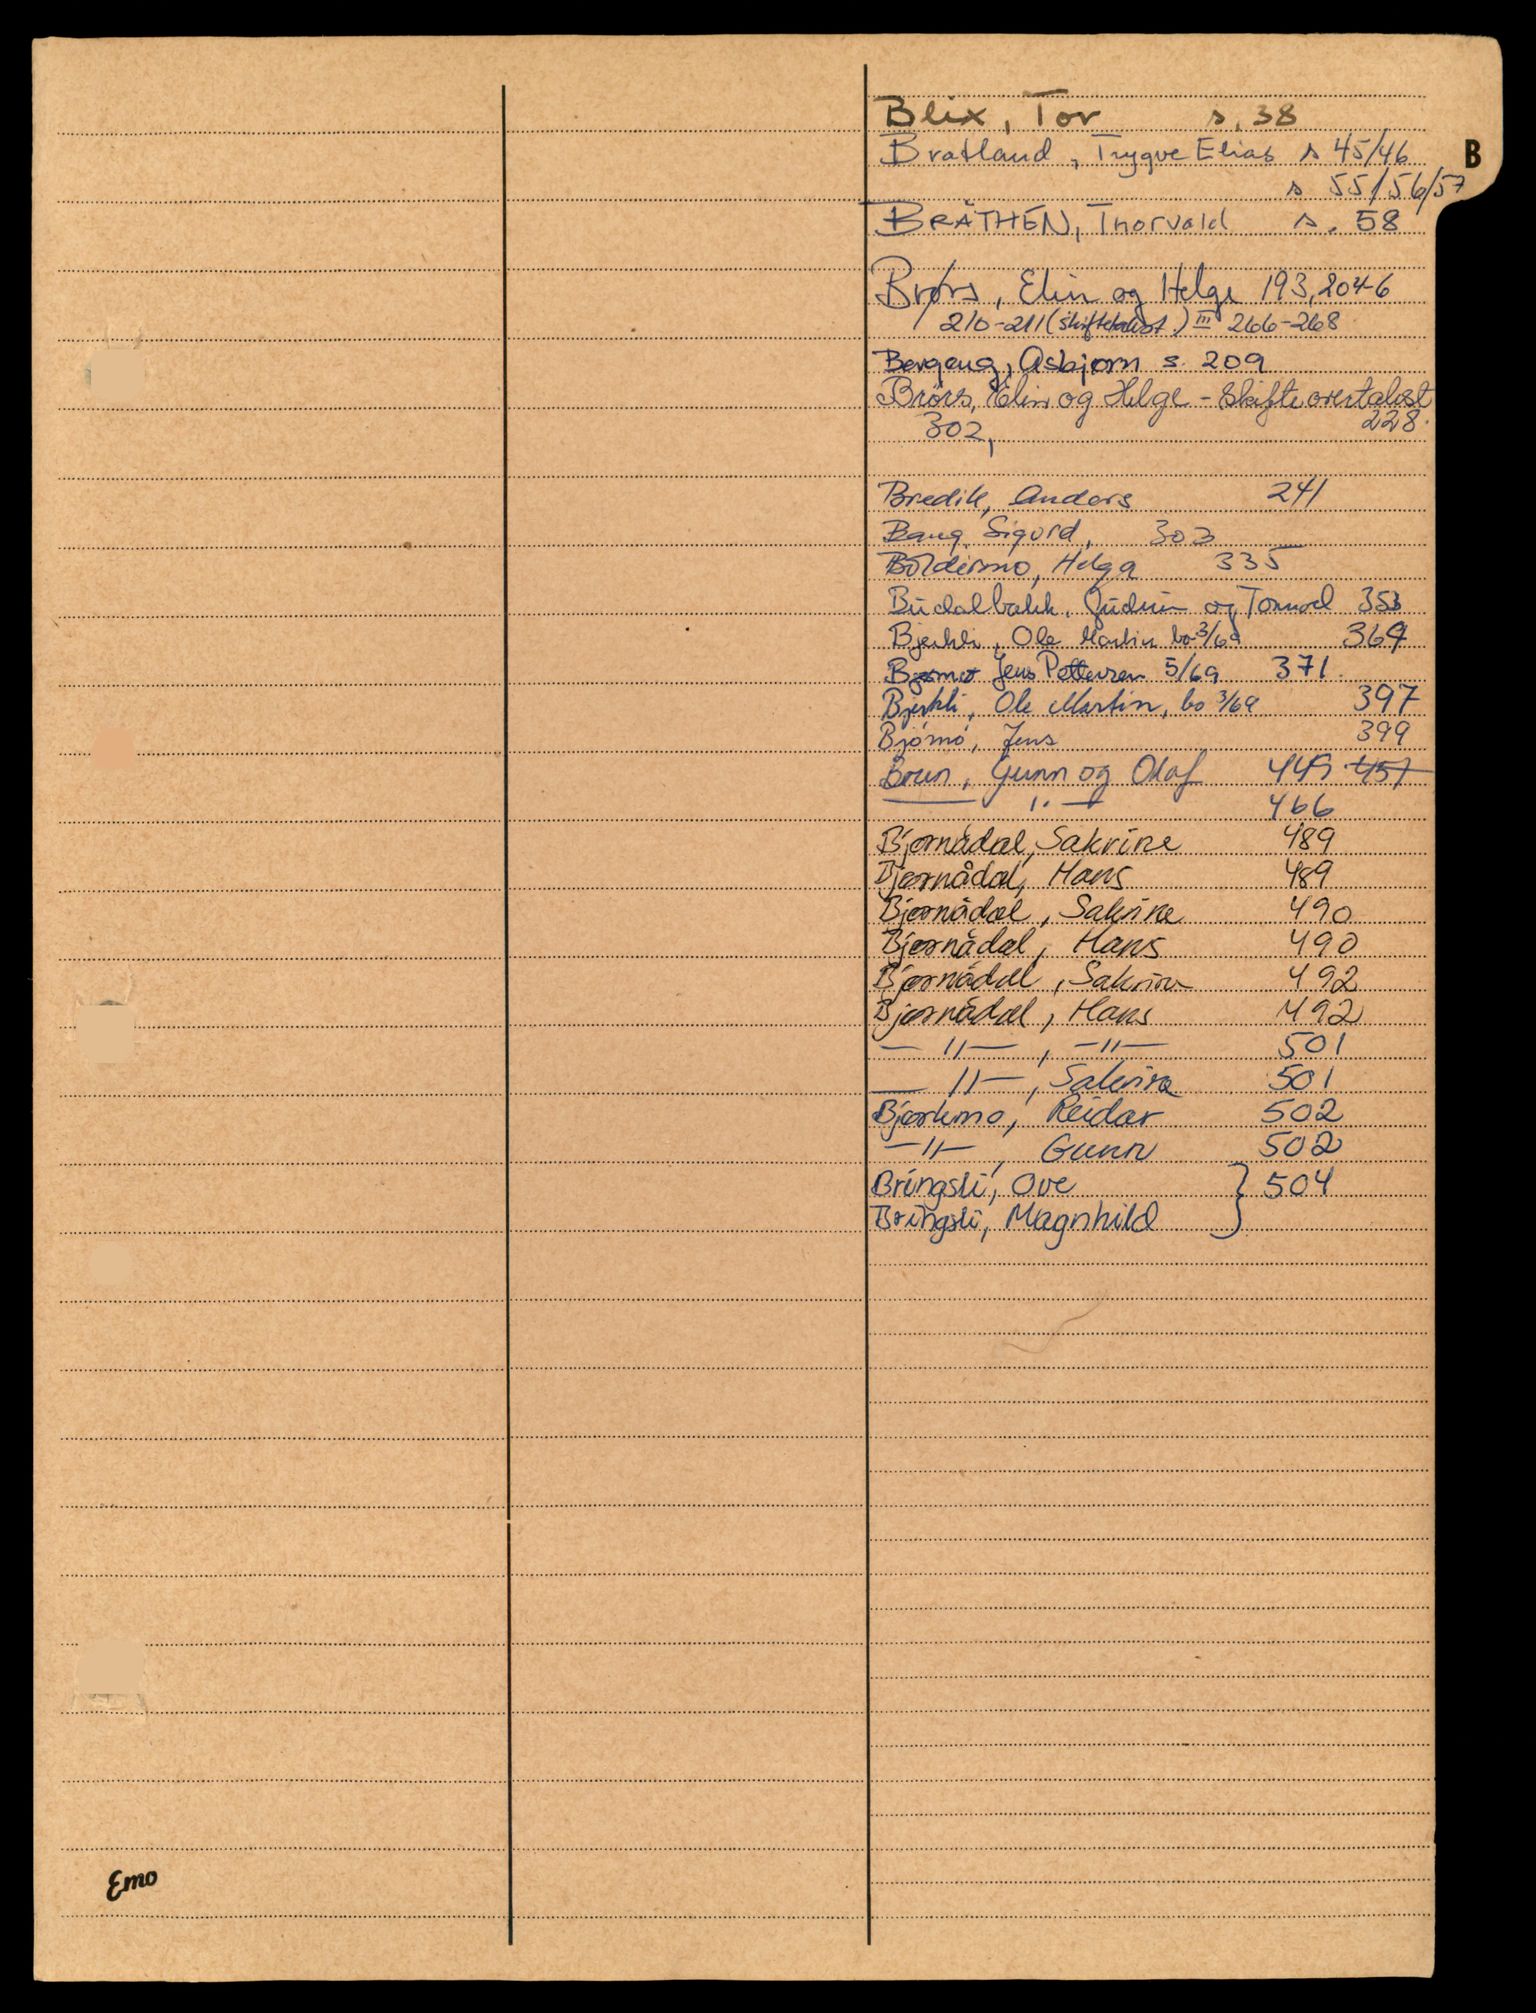 Blix, Tor s. 38
Bratland, Trygve Elias s 45/46
B
s 55/56/57
BRÅTHEN, Thorvald s. 58
Brørs, Elin og Helge 193, 204-6
210-211 (skiftetakst.) III 266-268
Bergeng, Asbjørn s. 209
Brørs, Elin og Helge - Skifteovertakst
302, 228.
Bredik, Anders 241
Bang Sigurd, 303
Boldermo, Helga 335
Budalbakk, Gudrun og Tormod 353
Bjerkli, Ole Martin bo 3/69 369
Bjørmo Jens Pettersen 5/69 371.
Bjerkli, Ole Martin, bo 3/69 397
Bjørmo, Jens 399
Brun, Gunn og Olaf 449 457
— " — 466
Bjørnådal, Sakrine 489
Bjørnådal, Hans 489
Bjørnådal, Sakrine 490
Bjørnådal, Hans 490
Bjørnådal, Sakrine 492
Bjørnådal, Hans 492
— " —, — " — 501
— " —, Sakrine 501
Bjørkmo, Reidar 502
— " —, Gunn 502
Bringsli, Ove } 504
Bringsli, Magnhild
Emo